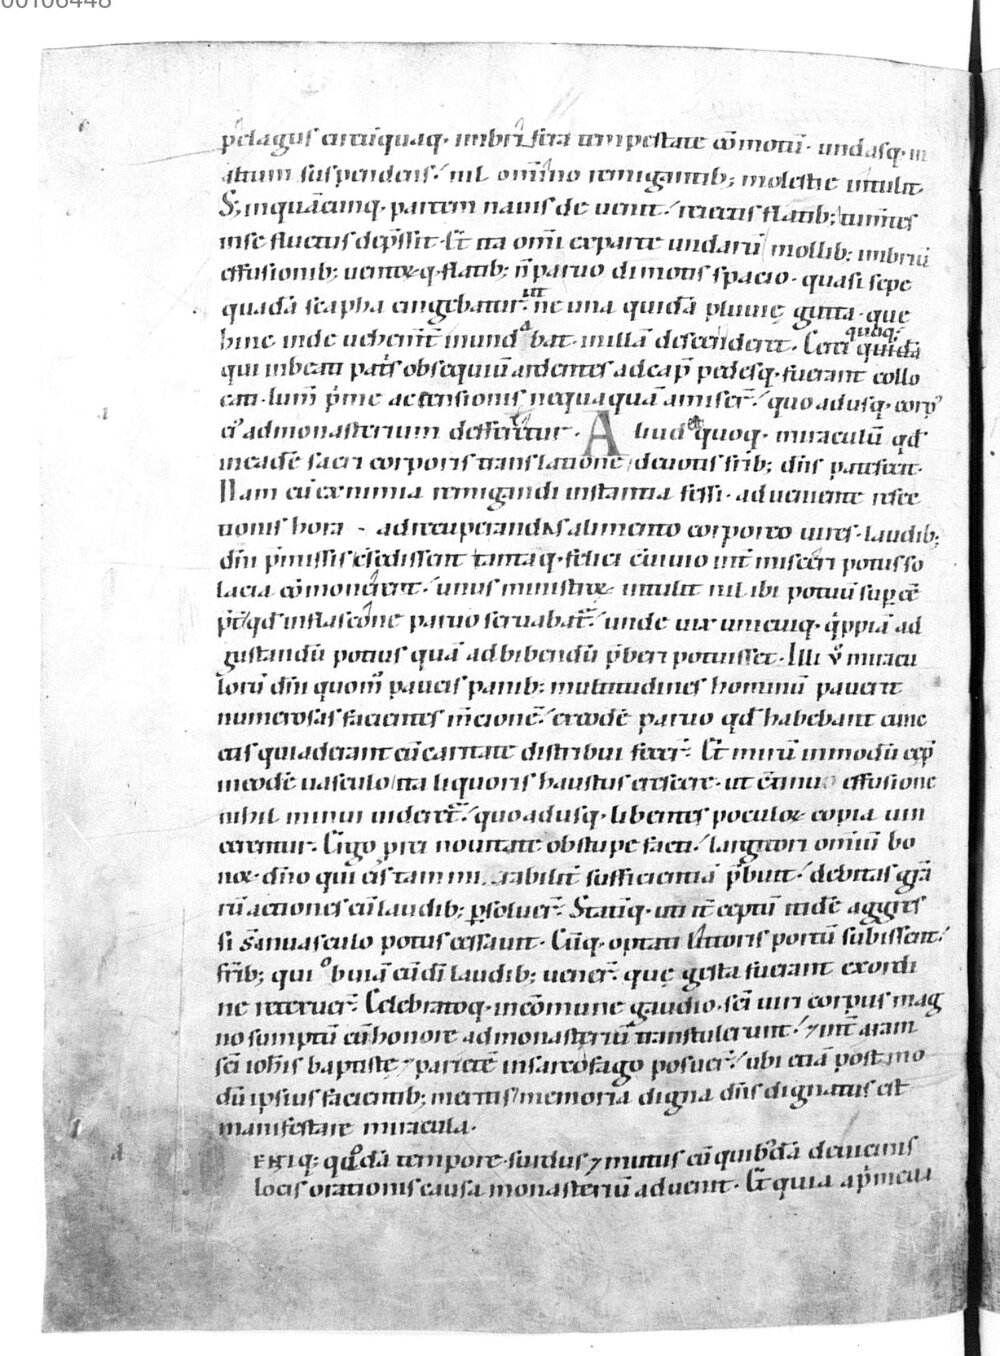 00106448
pelagus circūquaq· imbrifera tempestate cōmotū· undasq· in
altum suspendens⸵ nil om̄ino remigantib; molestie intulit·
S; inquācunq· partem nauis deuenit⸵ relictis flatib; tumētes
inse fluctus dep̄ssit· Et ita om̄i exparte undarū mollib; imbriū
effusionib; uentoꝝq· flatib; n̄ paruo dimotis spacio· quasi sepe
quadā scapha cingebatur· ut ne una quidā pluuię gutta· que
hinc inde uehem̄t inundabat· nullā descenderet. Cerei quoq; quidā
qui inbeati pat̄s obsequiū ardentes adcap̄ pedesq· fuerant collo
cati· lum̄ p̄me accensionis nequaquā amiser̄⸵ quoadusq· corp
ei admonasterium defferretur· Aliud et quoq· miraculū qd̄
ineadē sacri corporis translatione deuotis fr̄ib; dn̄s patefecit·
Nam cū exnimia remigandi instantia fessi· adueniente refec
tionis hora - adrecuperandas alimento corporeo uires· laudib;
dn̄i p̄missis c̄sedissent tantaq· felici c̄uiuio int̄misceri potus so
lacia cōmonerent⸵ unus ministroꝝ intulit nil ibi potuū sup̄ ēē
p̄t qd̄ inflascone paruo seruabat̄⸵ unde uix unicuiq· q̄ppiā ad
gustandū potius quā adbibendū p̄beri potuisset· Illi v̊ miracu
lorū dn̄i quom̊ paucis panib; multitudines hominū pauerit
numerosas facientes m̄cionē⸵ exeodē paruo qd̄ habebant cunc
tis quiaderant cū caritate distribui fecer̄· Et mirū inmodū cep̄
ineodē uasculo ita liquoris haustus crescere· ut c̄tinu effusione
nihil minui uideret̄⸵ quoadusq· libentes poculoꝝ copia uin
cerentur· Ergo p̄ rei nouitate obstupefacti⸵ largitori om̄iū bo
noꝝ dn̄o qui eis tam mirabilit̄ sufficientiā p̄buit⸵ debitas gr̄a
rū actiones cū laudib; p̱soluer̄· Statiq· uti it̄ ceptū itidē aggres
si s̄ inuasculo potus cessauit· Cūq· optati littoris portū subissent⸵
fr̄ib; qui obuiā eidē laudib; uener̄· quę gesta fuerant exordi
ne retexuer̄· Celebratoq· incōmune gaudio· sc̄i uiri corpus mag
no sumptū cū honore admonasteriū transtulerunt⸵ ⁊ int̄ aram
sc̄i ioh̄is baptiste ⁊ parietē insarcofago posuer̄⸵ ubi etiā postmo
dū ipsius facientib; meritis memoria digna dn̄s dignatus est
manifestare miracula·
ENIQ; quodā tempore surdus ⁊ mutus cū quibdā deuicinis
locis orationis causa monasteriū aduenit· Et quia ap̄meua